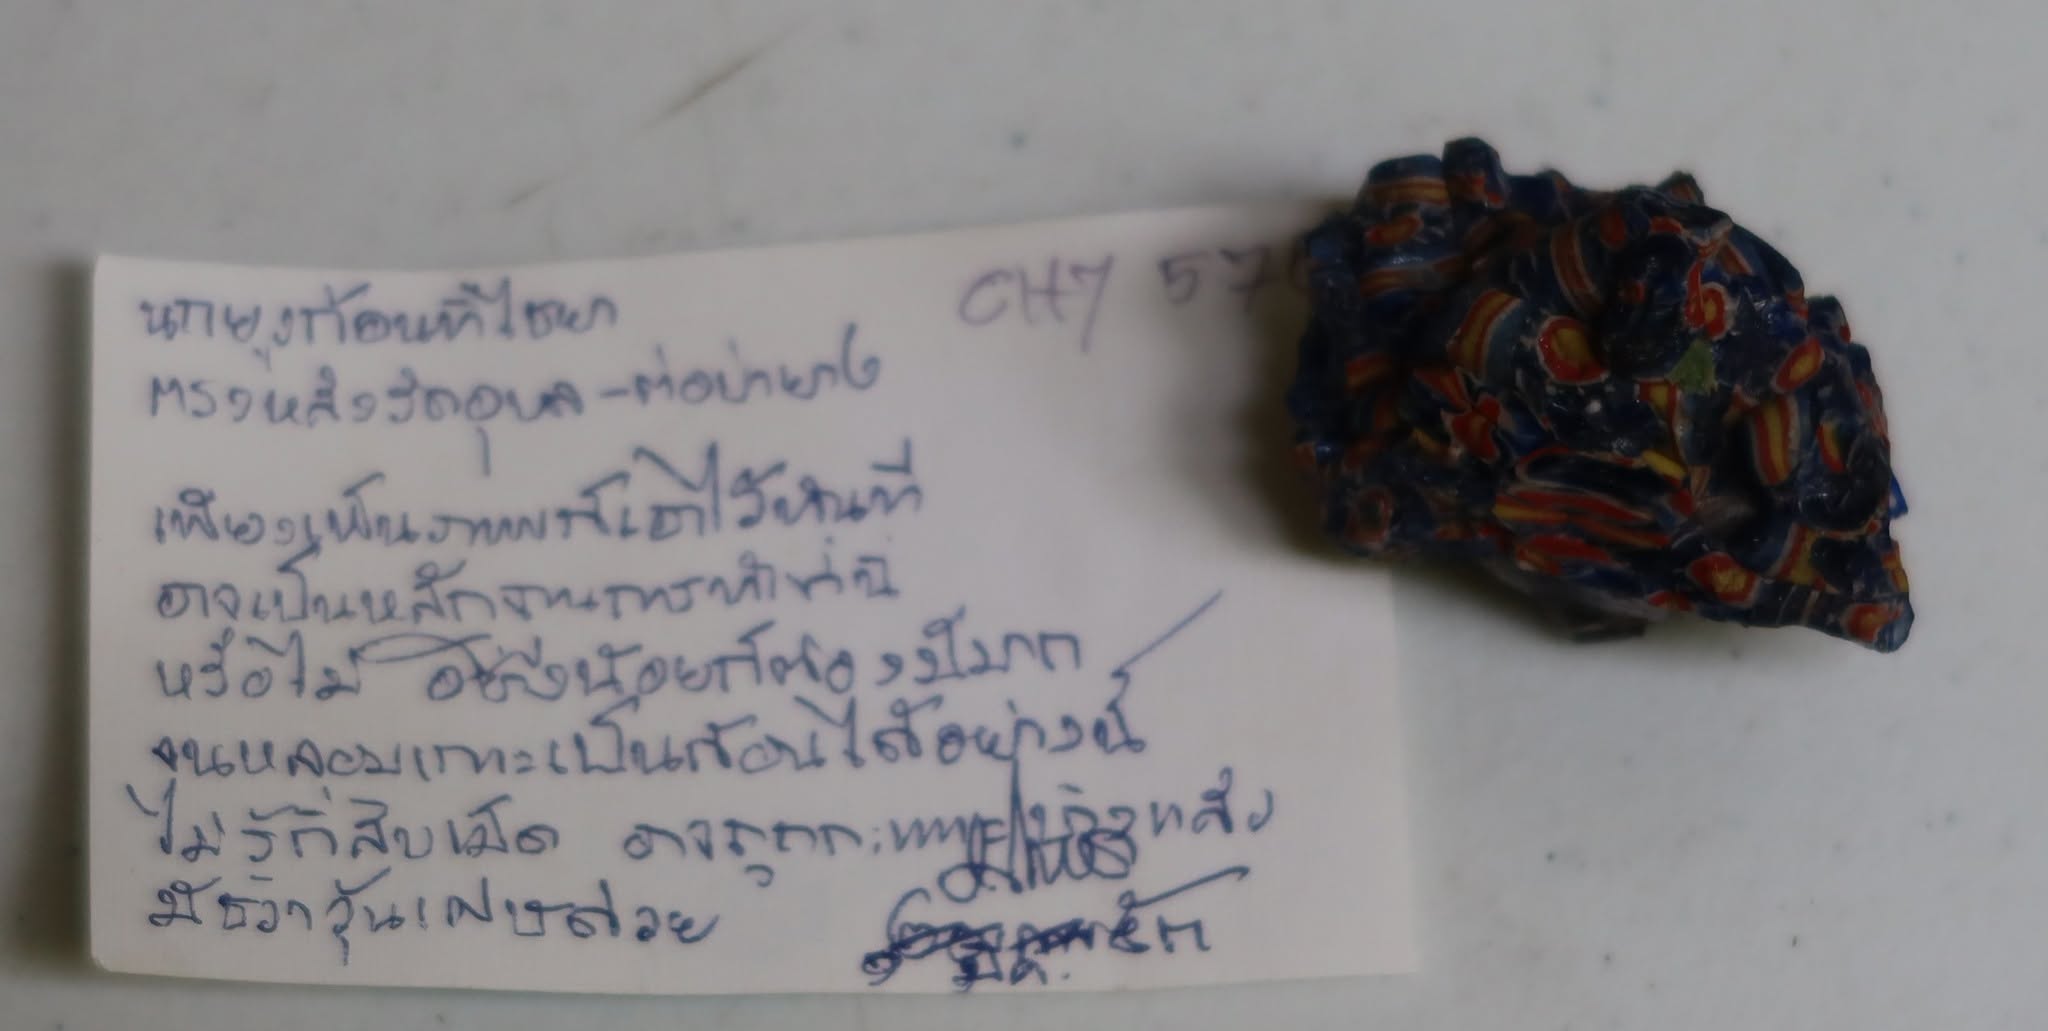 CH7 57
นกยูงก้อนที่ไชยา
ตรงหลังวัดอุบล - ต่อป่ายาง
เพียงเป็นภาพพจน์เอาไว้
อาจเป็นหลักฐานการทำที่นี่
หรือไม่ อย่างน้อยก็ต้องมีมาก
จนหลอมเกาะเป็นก้อนได้อย่างนี้
ไม่รู้กี่สิบเม็ด อาจถูก
มีชิ้น เศษด้วย